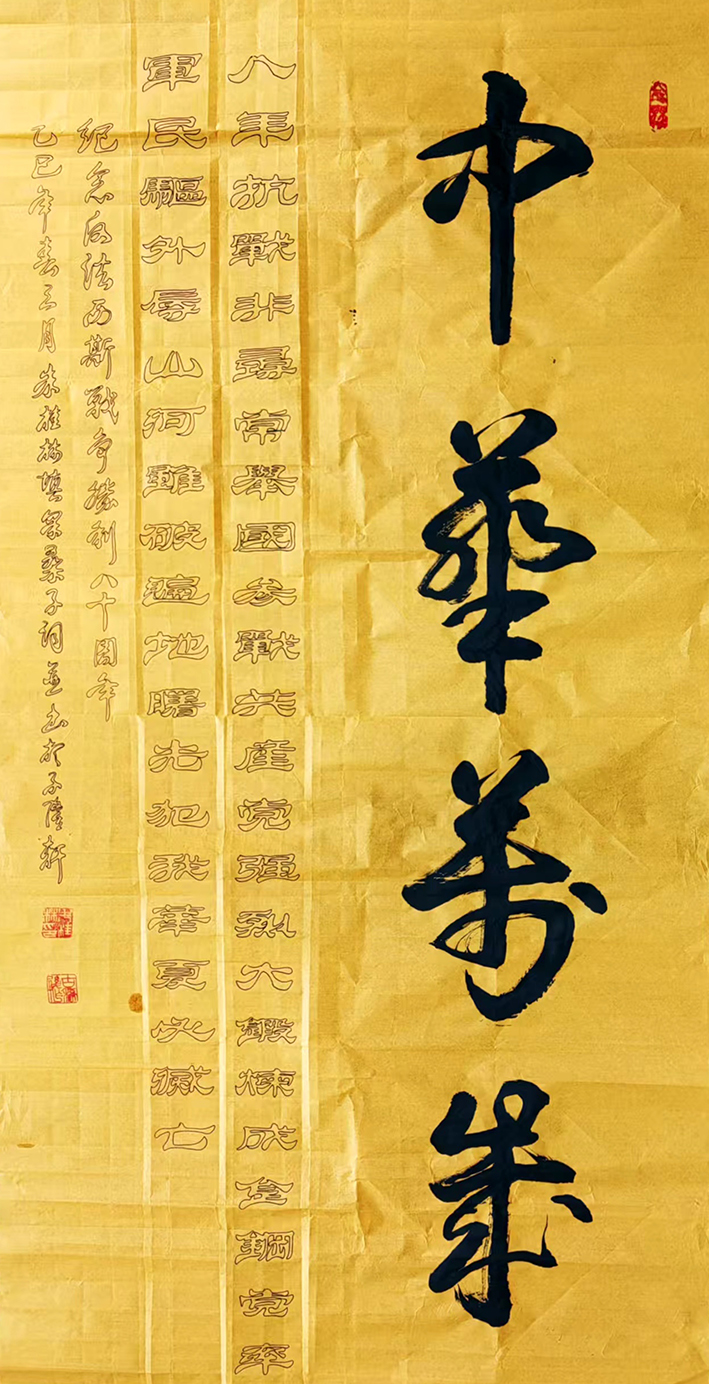 中華萬歲
八年抗戰非尋常舉國參戰共產党強烈火鍛煉成金鋼党率
軍民驅外辱山河雖破遍地曙光犯我華夏必滅亡
紀念反法西斯戰爭勝利八十周年
乙巳年春三月朱桂填采桑子詞並书於子隆軒